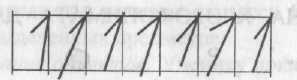 1 1 1 1 1 1 1